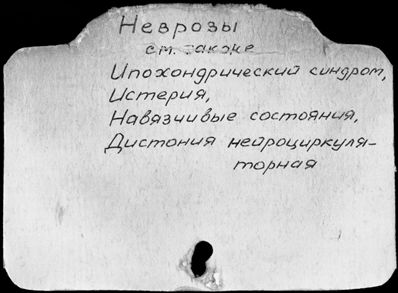 Неврозы
см. также
Ипохондрический синдром,
Истерия,
Навязчивые состояния,
Дистония нейроциркуля-
торная